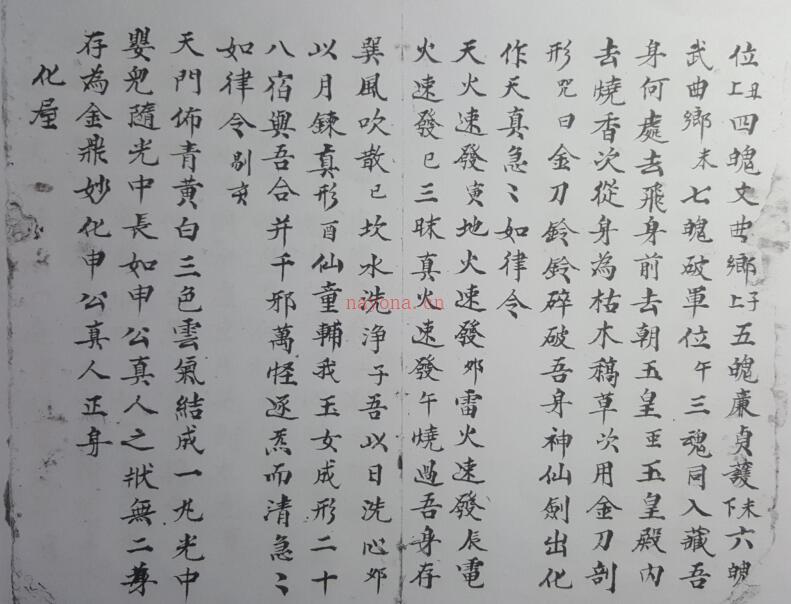 位上丑四魄文曲鄉上子五魄廉貞護下未六魄
武曲鄉未七魄破軍位午三魂同入藏吾
身何處去飛身前去朝玉皇王玉皇殿内
去燒香次從身為枯木稿草次用金刀剖
形咒曰金刀鈴鈴碎破吾身神仙劍出化
作天真急〻如律令
天火速發寅地火速發夘雷火速發辰電
火速發巳三昧真火速發午燒過吾身存
巽風吹散巳坎水洗淨子吾以日洗心夘
以月鍊真形酉仙童輔我玉女成形二十
八宿與吾合并千邪萬怪逐炁而清急〻
如律令剔亥
天門佈青黃白三色雲氣結成一丸光中
嬰兒隨光中長如申公真人之狀無二尊
存為金鼎妙化申公真人正身
化屋
nayona.cn